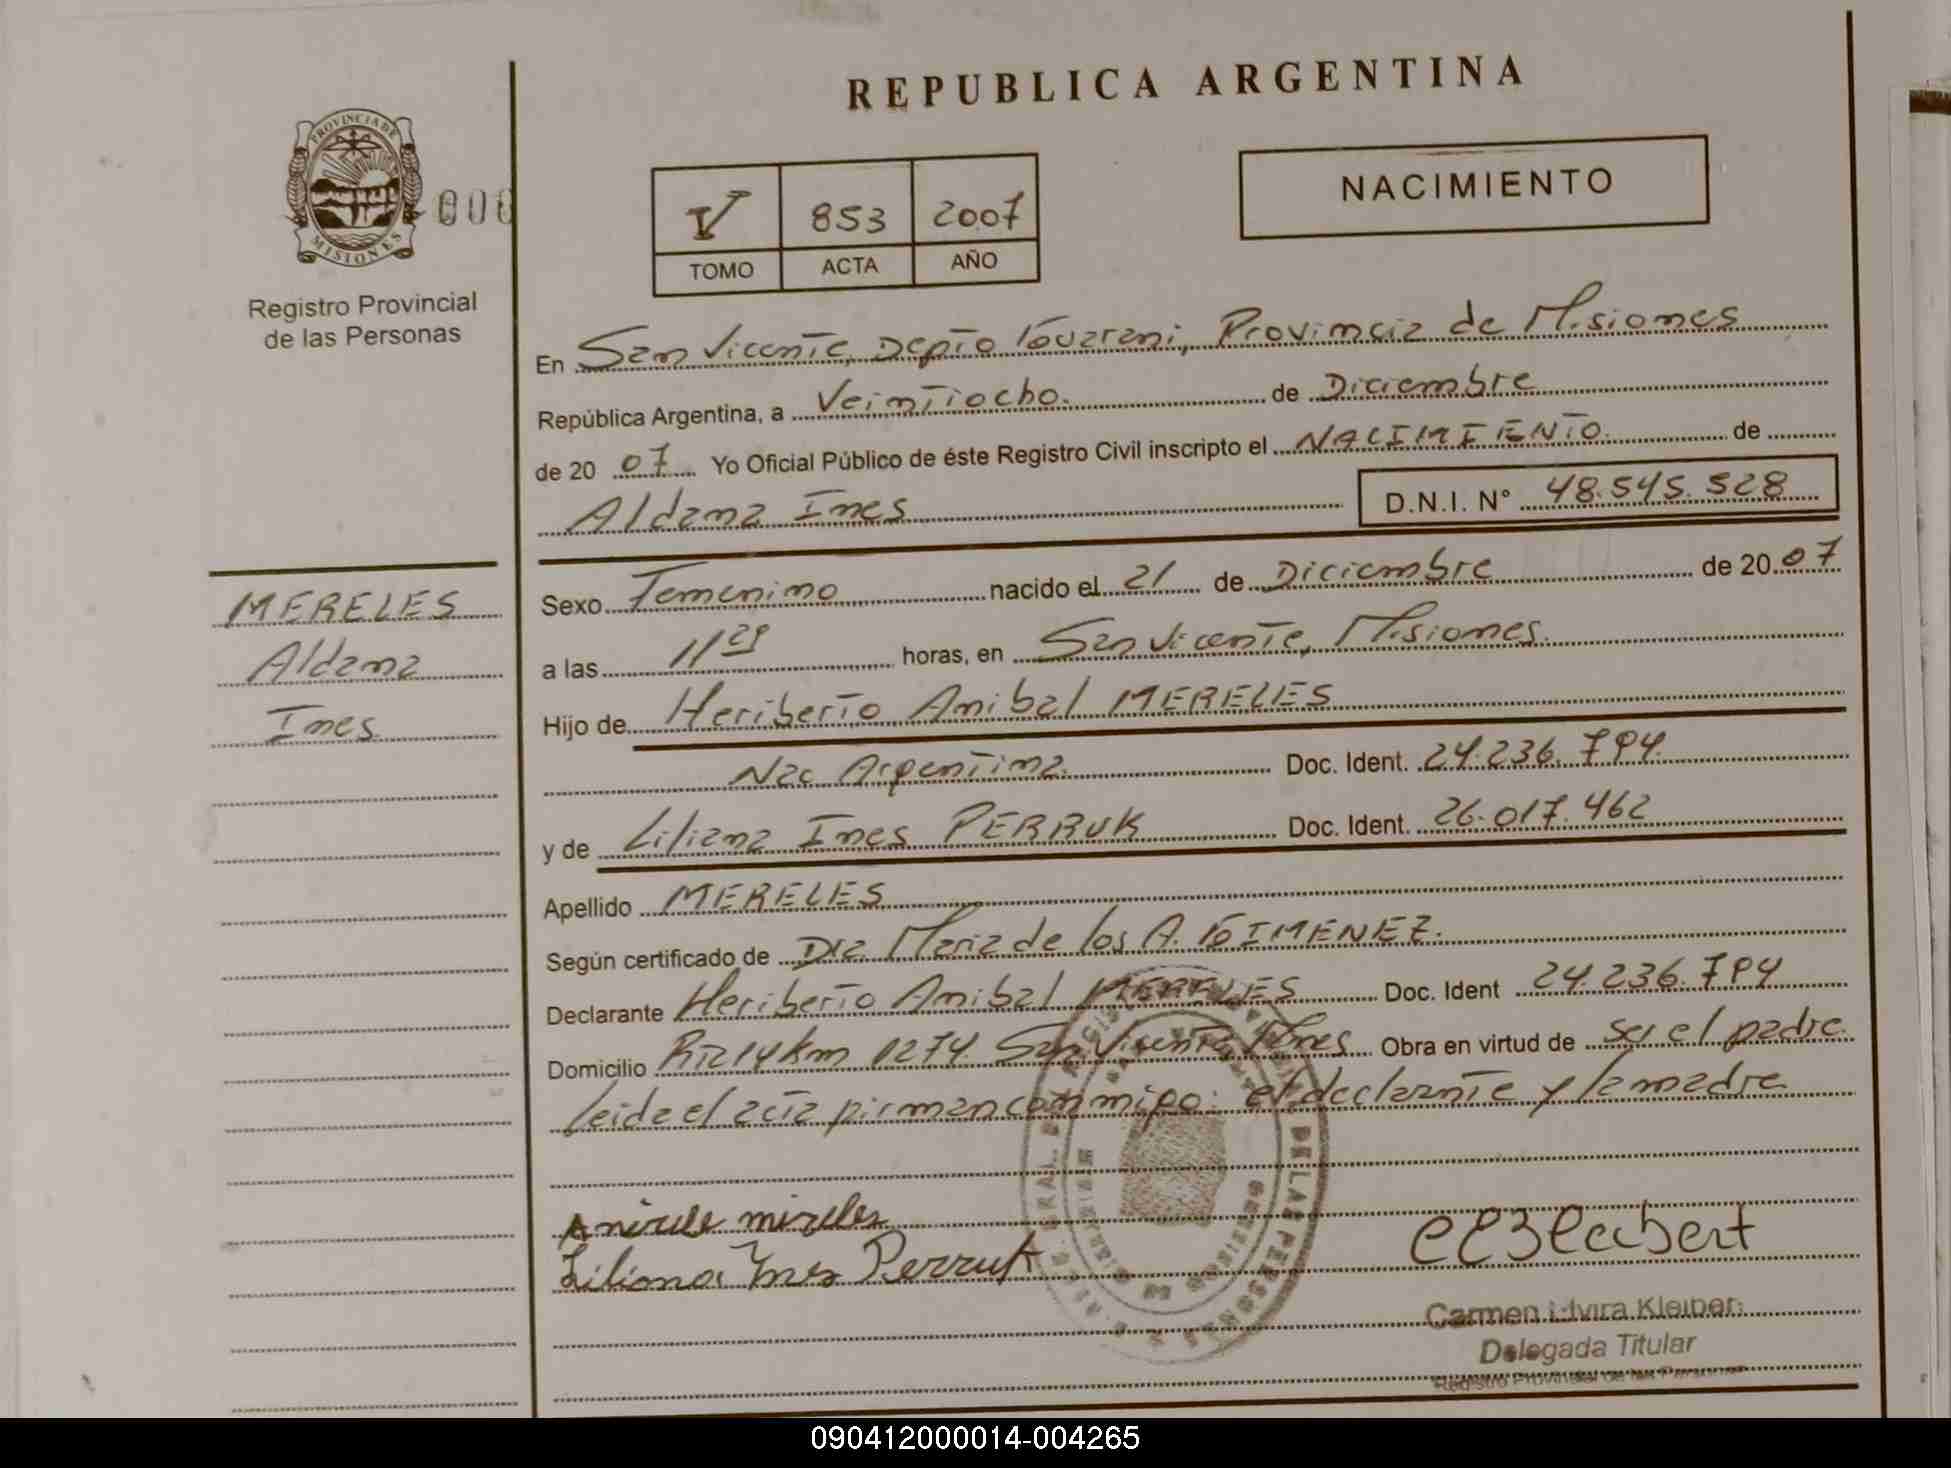 REPUBLICA ARGENTINA
PROVINCIA DE
MISIONES
000
Registro Provincial
de las Personas
V 853 2007
TOMO ACTA AÑO
NACIMIENTO
En San Vicente, Depto Guarani, Provincia de Misiones
República Argentina, a Veintiocho. de Diciembre
de 20 07 Yo Oficial Público de éste Registro Civil inscripto el NACIMIENTO. de
Aldana Ines D.N.I. N° 48.545.528
MERELES
Aldana
Ines
Sexo Femenino nacido el 21 de Diciembre de 20 07
a las 11 29 horas, en San Vicente, Misiones.
Hijo de Heriberto Anibal MERELES
Nac Argentina. Doc. Ident. 24.236.794.
y de Liliana Ines PERRUK Doc. Ident. 26.017.462
Apellido MERELES
Según certificado de Dra Maria de los A. GIMENEZ.
Declarante Heriberto Anibal MERELES Doc. Ident 24.236.794
Domicilio Rta 14 km 1274 San Vicente Mnes Obra en virtud de ser el padre.
Leida el acta firman conmigo: el declarante y la madre
Liliana Ines Perruk
DE LAS PERSONAS
Carmen Elvira Kleiber
Delegada Titular
Registro Provincial de las Personas
090412000014-004265